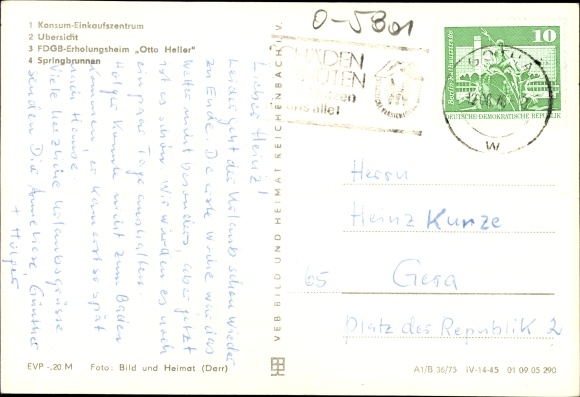 1 Konsum-Einkaufszentrum
2 Übersicht
3 FDGB-Erholungsheim „Otto Heller"
4 Springbrunnen
0-5801
SCHÄDEN
HÜTEN
10
Berlin · Rathausstraße
DEUTSCHE DEMOKRATISCHE REPUBLIK
GERA
W
Lieber Heinz!
Leider geht der Urlaub schon wieder
zu Ende. Die erste Woche war das
Wetter nicht besonders, aber jetzt
ist es schön. Wir würden es noch
ein paar Tage aushalten.
Holger konnte nicht zum Baden
kommen, er kam erst so spät
nach Hause.
Viele herzliche Urlaubsgrüße
senden Dir Anneliese, Günther
+ Holger
VEB BILD UND HEIMAT REICHENBACH i. V.
Herrn
Heinz Kunze
65 Gera
Platz der Republik 2
EVP -,20 M Foto: Bild und Heimat (Darr)
A1/B 36/75 IV-14-45 01 09 05 290